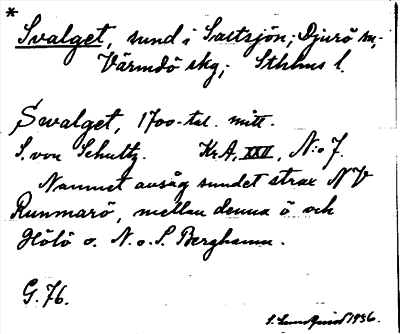 *
Svalget, sund i Saltsjön; Djurö sn,
Värmdö skg; Sthlms l.
Swalget, 1700-tal. mitt.
S. von Schultz. KrA, XXII, N:o 7.
Namnet avsåg sundet strax NV
Runmarö, mellan denna ö och
Hölö o. N. o. S. Berghamn.
G. 76.
S. Lundquist 1936.